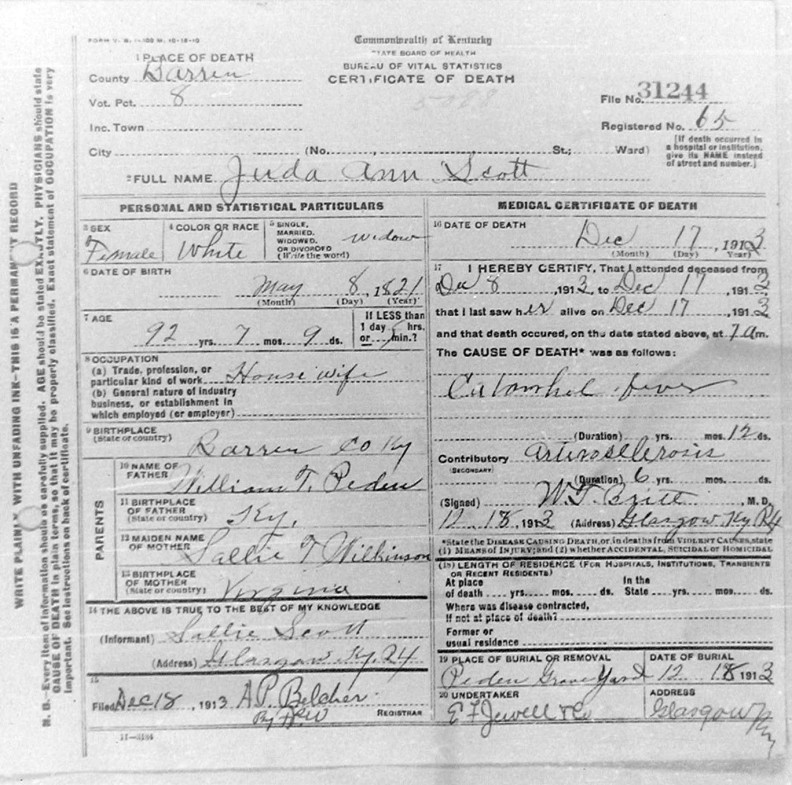 FORM V. S. 1-
Commonwealth of Kentucky
STATE BOARD OF HEALTH
BUREAU OF VITAL STATISTICS
CERTIFICATE OF DEATH
1 PLACE OF DEATH
County Barren
Vot. Pct. 8
Inc. Town
City (No. , St.; Ward)
File No. 31244
Registered No. 65
[If death occurred in a hospital or institution, give its NAME instead of street and number.]
2 FULL NAME Juda Ann Scott
PERSONAL AND STATISTICAL PARTICULARS
3 SEX Female
4 COLOR OR RACE White
5 SINGLE, MARRIED, WIDOWED, OR DIVORCED (Write the word) Widow
6 DATE OF BIRTH May 8, 1821
(Month) (Day) (Year)
7 AGE 92 yrs. 7 mos. 9 ds.
If LESS than 1 day hrs. or min.?
8 OCCUPATION
(a) Trade, profession, or particular kind of work House wife
(b) General nature of industry business, or establishment in which employed (or employer)
9 BIRTHPLACE (State or country) Barren Co Ky
PARENTS
10 NAME OF FATHER William T. Peden
11 BIRTHPLACE OF FATHER (State or country) Ky,
12 MAIDEN NAME OF MOTHER Sallie T Wilkinson
13 BIRTHPLACE OF MOTHER (State or country) Virginia
14 THE ABOVE IS TRUE TO THE BEST OF MY KNOWLEDGE
(Informant) Sallie Scott
(Address) Glasgow Ky.
15
Filed Dec 18, 1913 A P. Belcher
By REGISTRAR
MEDICAL CERTIFICATE OF DEATH
16 DATE OF DEATH Dec 17, 1913
(Month) (Day) (Year)
17 I HEREBY CERTIFY, That I attended deceased from
Dec 8 1913, to Dec 17, 1913
that I last saw her alive on Dec 17, 1913
and that death occured, on the date stated above, at 7 am.
The CAUSE OF DEATH* was as follows:
fever
(Duration) yrs. mos. 12 ds.
Contributory (SECONDARY)
(Duration) 6 yrs. mos. ds.
(Signed) W. T. , M. D.
12 18, 1913 (Address) Glasgow Ky R4
*State the DISEASE CAUSING DEATH, or, in deaths from VIOLENT CAUSES, state
(1) MEANS OF INJURY; and (2) whether ACCIDENTAL, SUICIDAL or HOMICIDAL
(18) LENGTH OF RESIDENCE (FOR HOSPITALS, INSTITUTIONS, TRANSIENTS OR RECENT RESIDENTS)
At place of death yrs. mos. ds. In the State yrs. mos. ds.
Where was disease contracted, If not at place of death?
Former or usual residence
19 PLACE OF BURIAL OR REMOVAL Peden Grave Yard
DATE OF BURIAL 12 18 1913
20 UNDERTAKER E F Jewell & Co
ADDRESS Glasgow Ky
WRITE PLAINLY WITH UNFADING INK—THIS IS A PERMANENT RECORD
N. B.—Every item of information should be carefully supplied. AGE should be stated EXACTLY. PHYSICIANS should state
CAUSE OF DEATH in plain terms, so that it may be properly classified. Exact statement of OCCUPATION is very
important. See instructions on back of certificate.